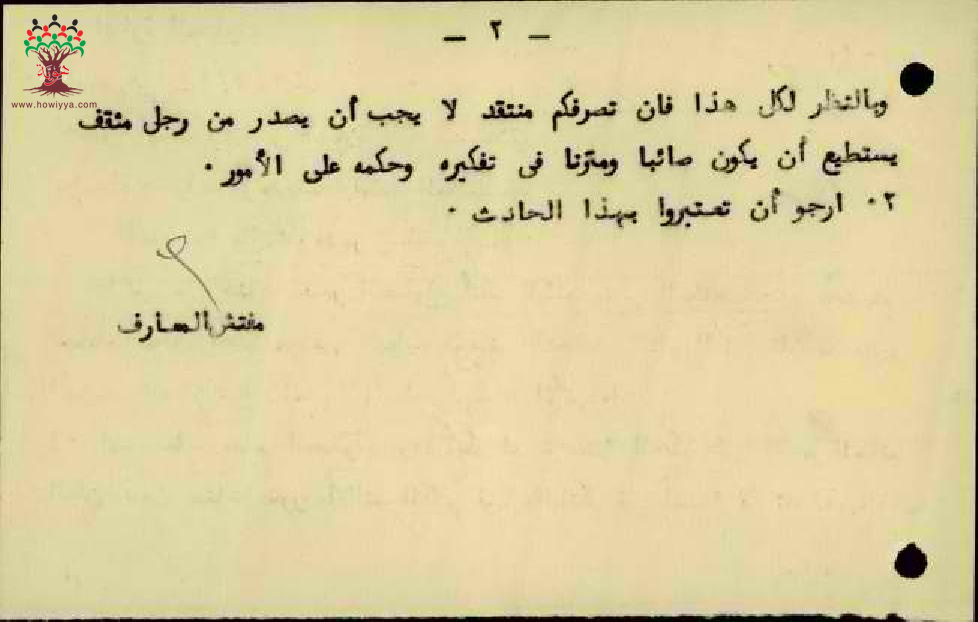 www.howiyya.com
— ٢ —
وبالنظر لكل هذا فان تصرفكم منتقد لا يجب أن يصدر من رجل مثقف
يستطيع أن يكون صائبا ومتزنا فى تفكيره وحكمه على الأمور ٠
٠٢ ارجو أن تعتبروا بهذا الحادث ٠
مفتش المعارف